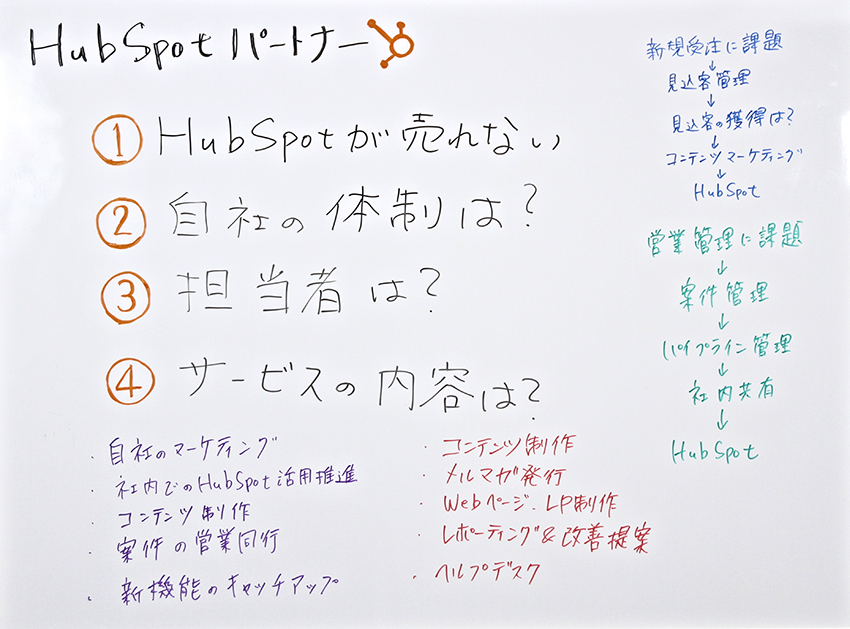 HubSpotパートナー
① HubSpotが売れない
② 自社の体制は?
③ 担当者は?
④ サービスの内容は?
・自社のマーケティング
・社内でのHubSpot活用推進
・コンテンツ制作
・案件の営業同行
・新機能のキャッチアップ
・コンテンツ制作
・メルマガ発行
・Webページ、LP制作
・レポーティング&改善提案
・ヘルプデスク
新規受注に課題
↓
見込客管理
↓
見込客の獲得は?
↓
コンテンツマーケティング
↓
HubSpot
営業管理に課題
↓
案件管理
↓
パイプライン管理
↓
社内共有
↓
HubSpot